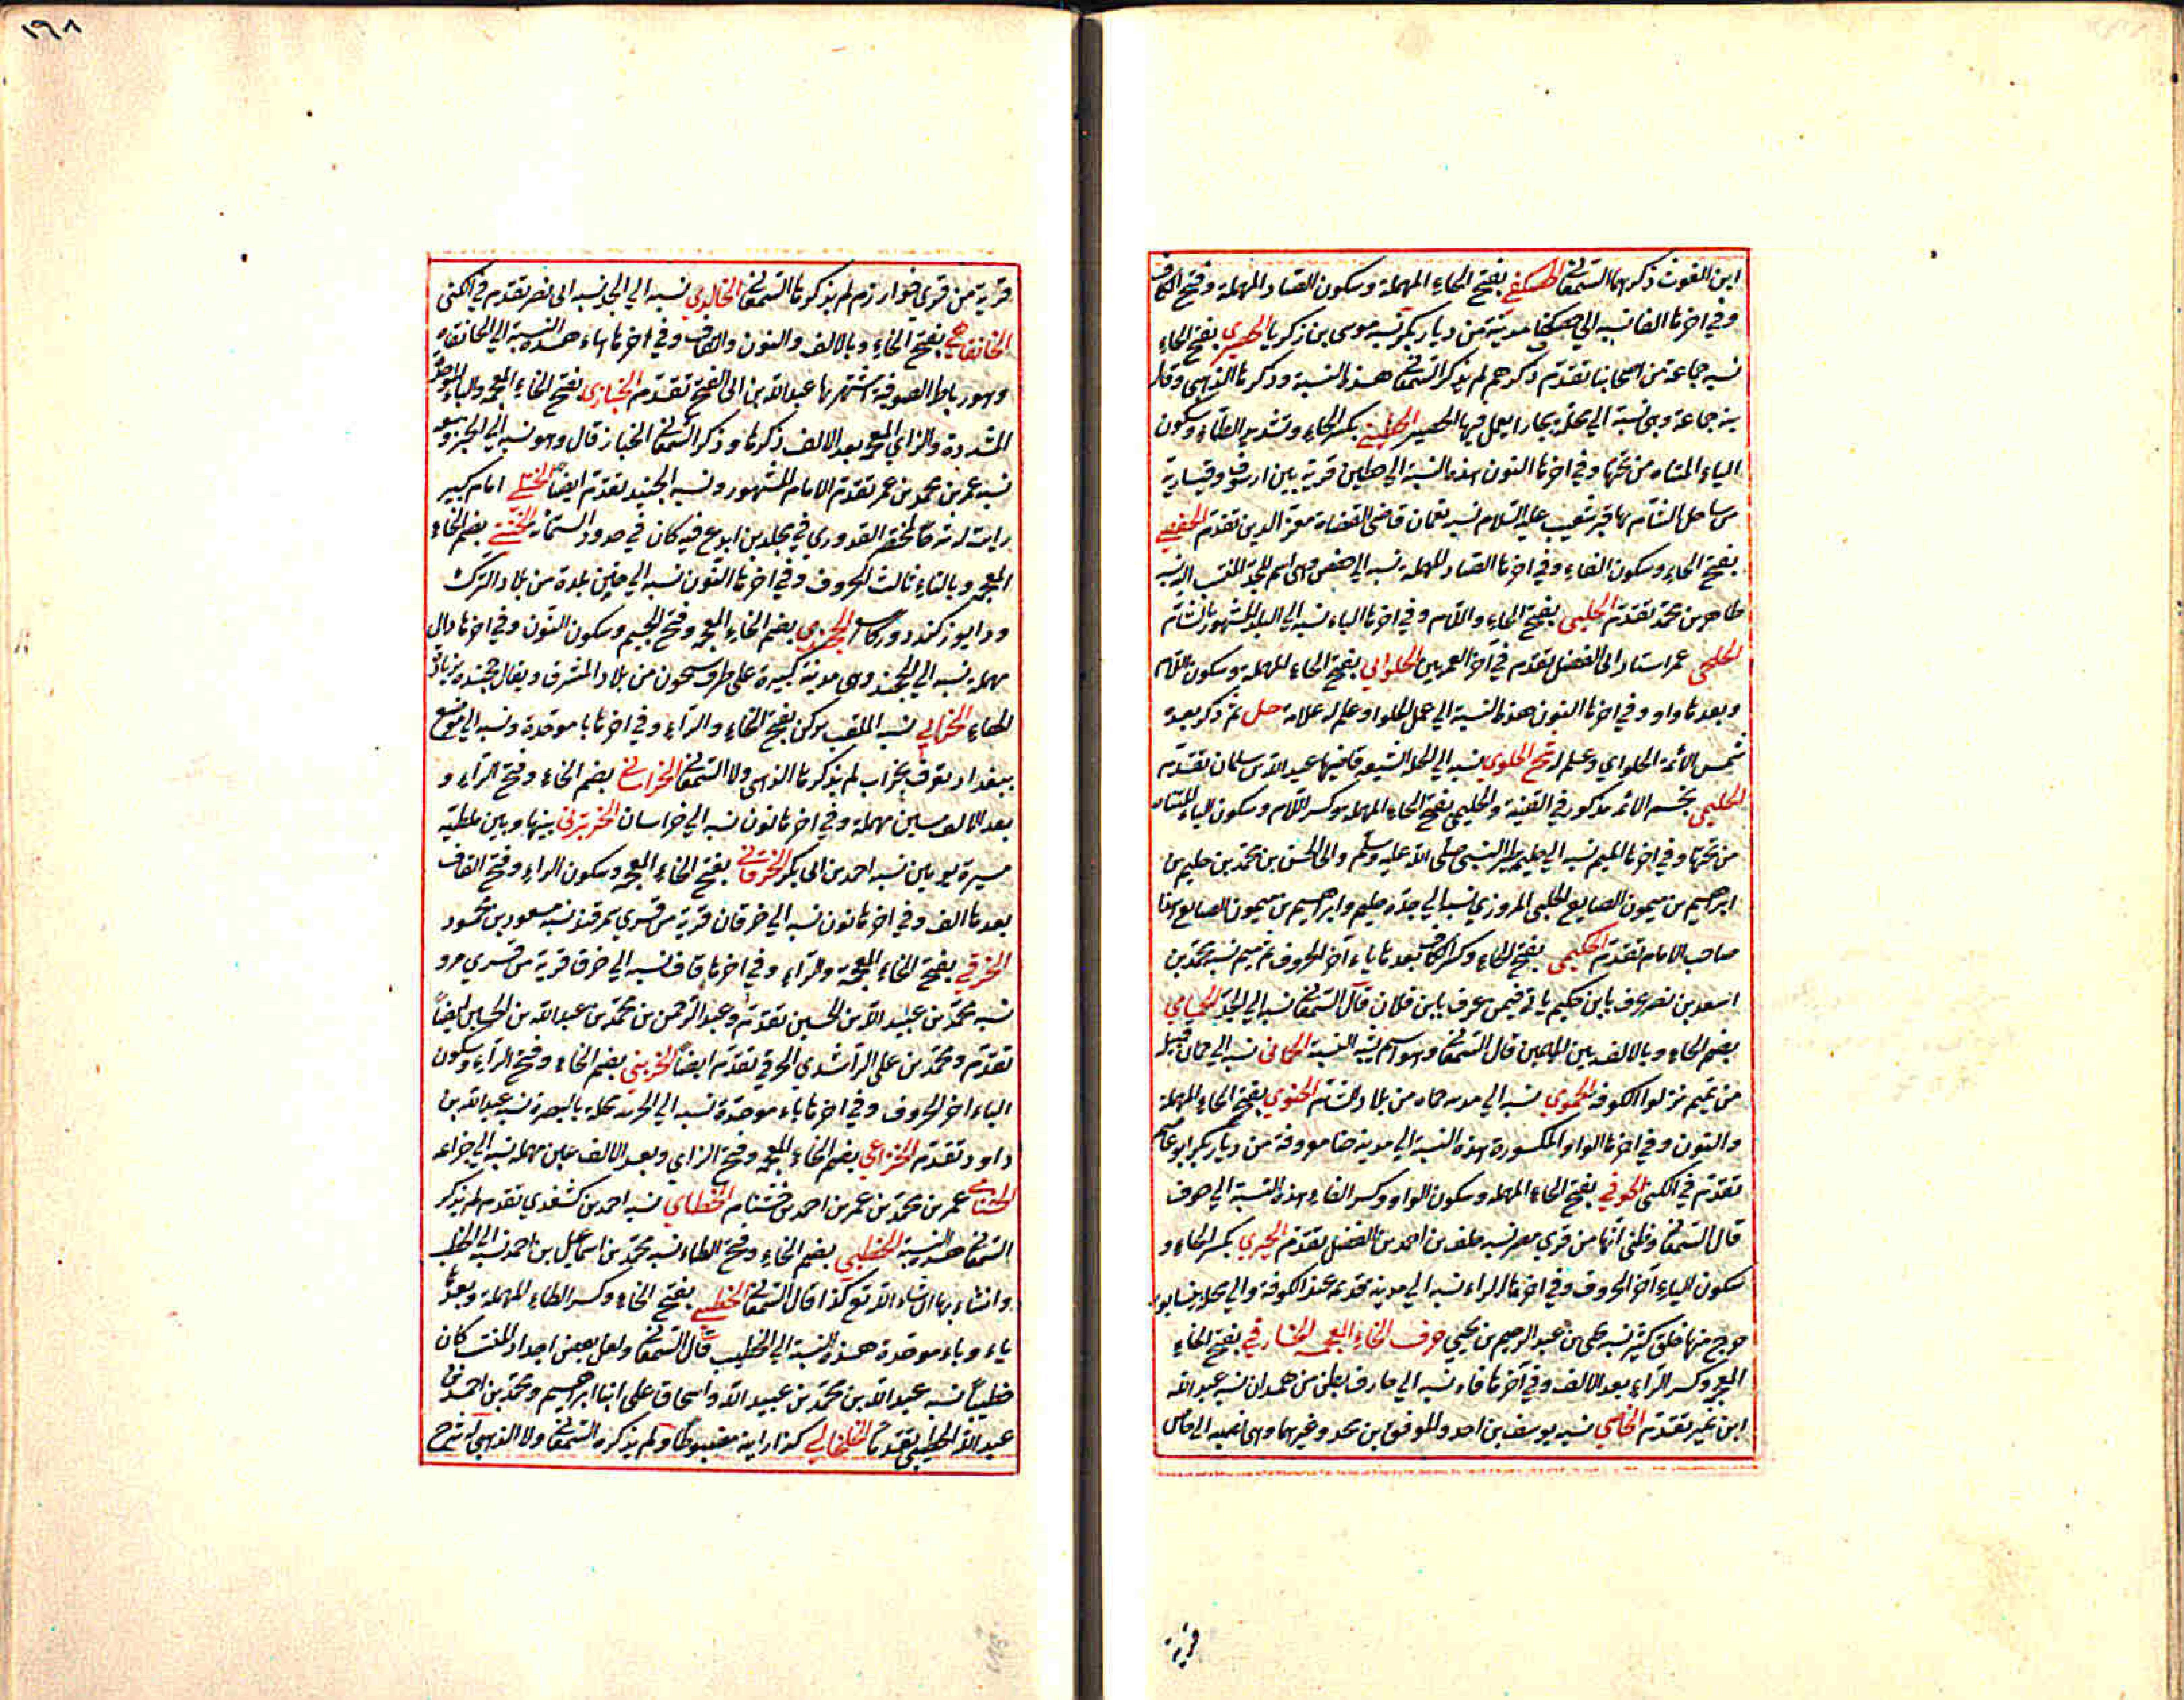 ابن الغوث ذكرهما السمعاني الحصكفي بفتح الحاء المهملة وسكون الصاد المهملة وفتح الكاف
وفي اخرها الفا نسبة الي حصكفا مدينة من ديار بكر نسبه موسى بن زكريا الحصيري بفتح الحاء
نسبه جماعة من اصحابنا تقدم ذكرهم لم يذكر السمعاني هذه النسبة وذكرها الذهبي وقال
جماعة وهي نسبة الي محلة بخارا يعمل فيها الحصير الحطيني بكسر الحاء وتشديد الطاء وسكون
الياء المثناه من تحتها وفي اخرها النون هذه النسبة الي حطين قرية بين ارسوف وقيسارية
من ساحل الشام بها قبر شعيب عليه السلام نسبه نعمان قاضي القضاة معز الدين تقدم الحفصي
بفتح الحاء وسكون الفاء وفي اخرها الصاد المهملة نسبه الي حفص وهي اسم للجد المنتسب اليه نسبه
طاهر بن محمد تقدم الحلبي بفتح الحاء واللام وفي اخرها الباء نسبه الي البلد المشهور بالشام
الحلحي عمر استاد ابي الفضل تقدم في آخر العمرين الحلواني بفتح الحاء المهملة وسكون اللام
وبعدها واو وفي اخرها النون هذه النسبة الي عمل الحلوا وعلم له علامة حل ثم ذكر بعده
شمس الأئمة الحلواي وعلم له مح الحلوي نسبه الي الحلة الشيعه قاضيها عبيد الله بن سلمان تقدم
الحليمي نجم الائمه مذكور في القنية والحليمي بفتح الحاء المهملة وكسر اللام وسكون الياء المثناه
من تحتها وفي اخرها الميم نسبه الي حليمة ظئر النبي صلى الله عليه وسلم والى الحسن بن محمد بن حليم بن
ابرهيم بن ميمون الصايغ الحليمي المروزي نسبه الي جده حليم وابرهيم بن ميمون الصايغ هذا
صاحب الامام تقدم الحكيمي بفتح الحاء وكسر الكاف بعدها ياء آخر الحروف ثم ميم نسبه محمد بن
اسعد بن نصر عرف بابن حكيم ياتي فيمن عرف بابن فلان قال السمعاني نسبه الي الجد الحمامي
بضم الحاء وبالالف بين الميمين قال السمعاني وهو اسم يشبه النسبة الحماني نسبه الي حمان قبيلة
من تميم نزلوا الكوفة الحموي نسبه الي مدينة حماه من بلاد الشام الحنوي بفتح الحاء المهملة
والنون وفي اخرها الواو المكسورة هذه النسبة الي مدينة حنا معروفة من ديار بكر ابو عاصم
تقدم في الكنى الحوفي بفتح الحاء المهملة وسكون الواو وكسر الفاء هذه النسبة الي حوف
قال السمعاني وظني انها من قري مصر نسبه خلف بن احمد بن الفضل تقدم الحيري بكسر الحاء و
سكون الياء آخر الحروف وفي اخرها الراء نسبه الي مدينة قديمة عند الكوفة والي محلة بنيسابور
خرج منها خلق كثير نسبه علي بن عبد الرحيم بن يحيي حرف الخاء المعجمة الخارفي بفتح الخاء
المعجمة وكسر الراء بعد الالف وفي آخرها فاء نسبه الي خارف بطن من همدان نسبه عبد الله
ابن نمير تقدم الخاصي نسبه يوسف بن احمد والموفق بن محمد وغيرهما وهي نسبه الي خاص
قرية
١٦٨
قرية من قري خوارزم لم يذكرها السمعاني الخالدي نسبه الي الجد نسبه ابي نصر تقدم في الكنى
الخانقاهي بفتح الخاء وبالالف والنون والقاف وفي اخرها الهاء هذه النسبة الي الخانقاه
وهو رباط الصوفية اشتهر بها عبد الله بن ابي الفتح تقدم الخبازي بفتح الخاء المعجمة والباء الموحدة
المشددة والزاي المعجمة بعد الالف ذكرها وذكر السمعاني الخباز قال وهو نسبه الي الخبز وبيعه
نسبه عمر بن محمد بن عمر تقدم الامام المشهور ونسبه الجنيد تقدم ايضا الختلي امام كبير
رايت له شرحا لمختصر القدوري في مجلدين ابدع فيه كان في حدود الستمائة الختني بضم الخاء
المعجمة وبالتاء ثالث الحروف وفي اخرها النون نسبه الي ختن بلدة من بلاد الترك
ورا يوزكند ودون كاشغر الخجندي بضم الخاء المعجمة وفتح الجيم وسكون النون وفي اخرها دال
مهملة نسبه الي الخجند وهي مدينة كبيرة على طرف سيحون من بلاد المشرق ويقال خجنده بزيادة
الهاء الخرابي نسبه الملقب بركن بفتح الخاء والراء وفي اخرها با موحدة ونسبه الي موضع
ببغداد يعرف بخراب لم يذكرها الذهبي ولا السمعاني الخراساني بضم الخاء وفتح الراء و
بعد الالف سين مهملة وفي اخرها نون نسبه الي خراسان الخرتبرتي بينها وبين ملطية
مسيرة يومين نسبه احمد بن ابي بكر الخرقاني بفتح الخاء المعجمة وسكون الراء وفتح القاف
بعدها الف وفي اخرها نون نسبه الي خرقان قرية من قري سمرقند نسبه مسعود بن محمود
الخرقي بفتح الخاء المعجمة والراء وفي اخرها قاف نسبه الي خرق قرية من قري مرو
نسبه محمد بن عبيد الله بن الحسين تقدم وعبد الرحمن بن محمد بن عبد الله بن الحسين ايضا
تقدم ومحمد بن علي الراشدي الخرقي تقدم ايضا الخريبي بضم الخاء وفتح الراء وسكون
الياء اخر الحروف وفي اخرها باء موحدة نسبه الي الخريبة محلة بالبصرة نسبه عبد الله بن
داود تقدم الخزاعي بضم الخاء المعجمة وفتح الزاي وبعد الالف عين مهملة نسبه الي خزاعه
الخشنامي عمر بن محمد بن عمر بن احمد بن خشنام الخطابي نسبه احمد بن كشغدي تقدم لم يذكر
السمعاني هذه النسبة الخطبي بضم الخاء وفتح الطاء نسبه محمد بن اسماعيل بن احمد نسبه الي الخطب
وانشاء بها ان شاء الله تع كذا قال السمعاني الخطيبي بفتح الخاء وكسر الطاء المهملة وبعدها
ياء وباء موحدة هذه النسبة الي الخطيب قال السمعاني ولعل بعض اجداد المنتسب كان
خطيبا نسبه عبد الله بن محمد بن عبيد الله واسحاق علي ابنا ابرهيم ومحمد بن احمد بن
عبد الله الخطيبي تقدما الخلخالي كذا رايته مضبوطا ولم يذكره السمعاني ولا الذهبي له شرح